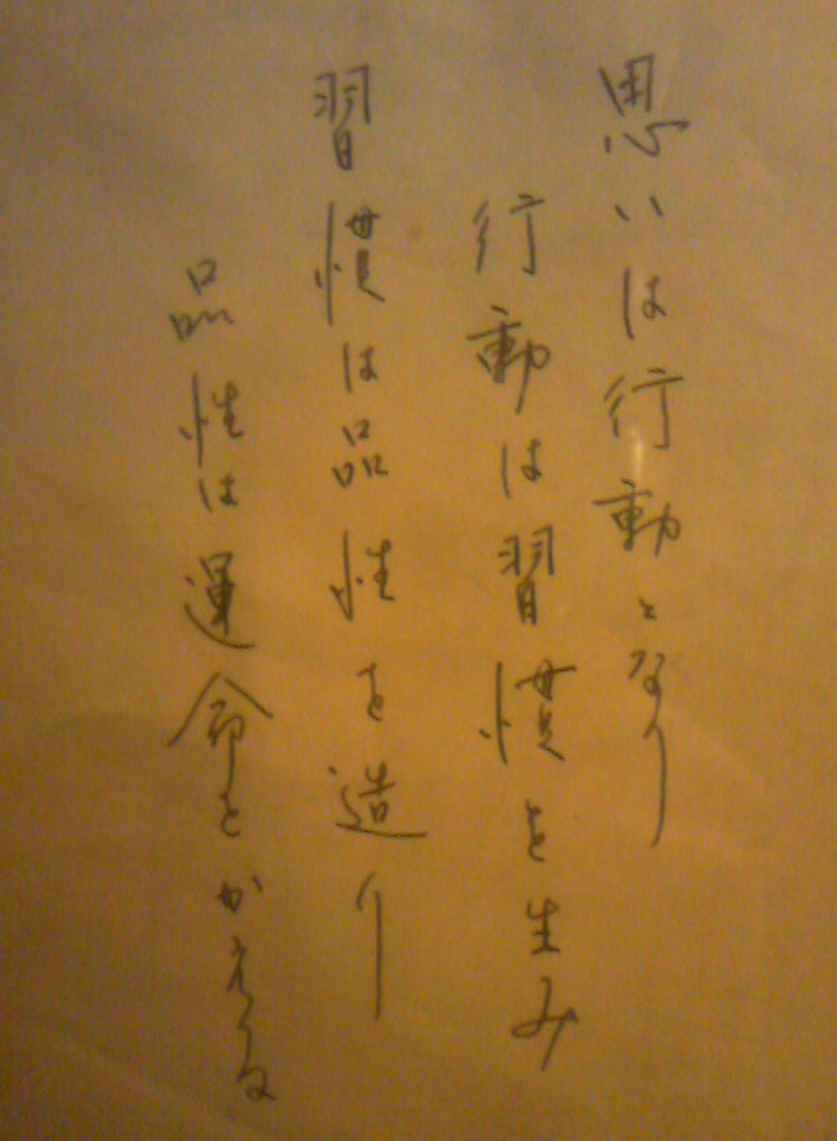 思いは行動となり
行動は習慣を生み
習慣は品性を造り
品性は運命をかえる